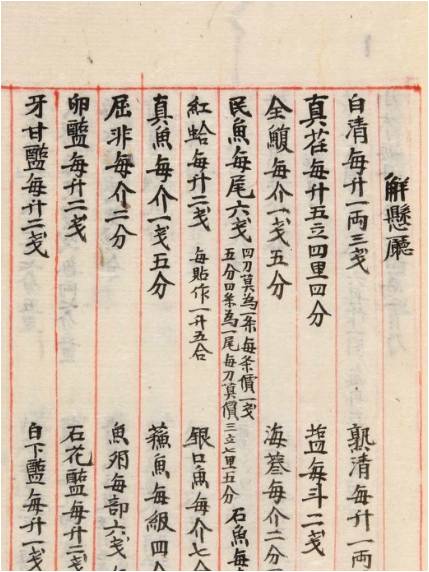 解懸廳
白清每升一両三戔 熟清每升一両
真荏每升五戔四里四分 塩每斗二戔
全鰒每介一戔五分 海蔘每介二分
民魚每尾六戔 四刀莫為一条每条價一戔五分四条為一尾每刀莫價三戔七里五分 石魚每
紅蛤每升二戔 每貼作一升五合 銀口魚每介七分
真魚每介一戔五分 蘓魚每級四分
屈非每介二分 魚卵每部六戔
卵醢每升二戔 石花醢每升二戔
牙甘醢每升二戔 白下醢每升一戔